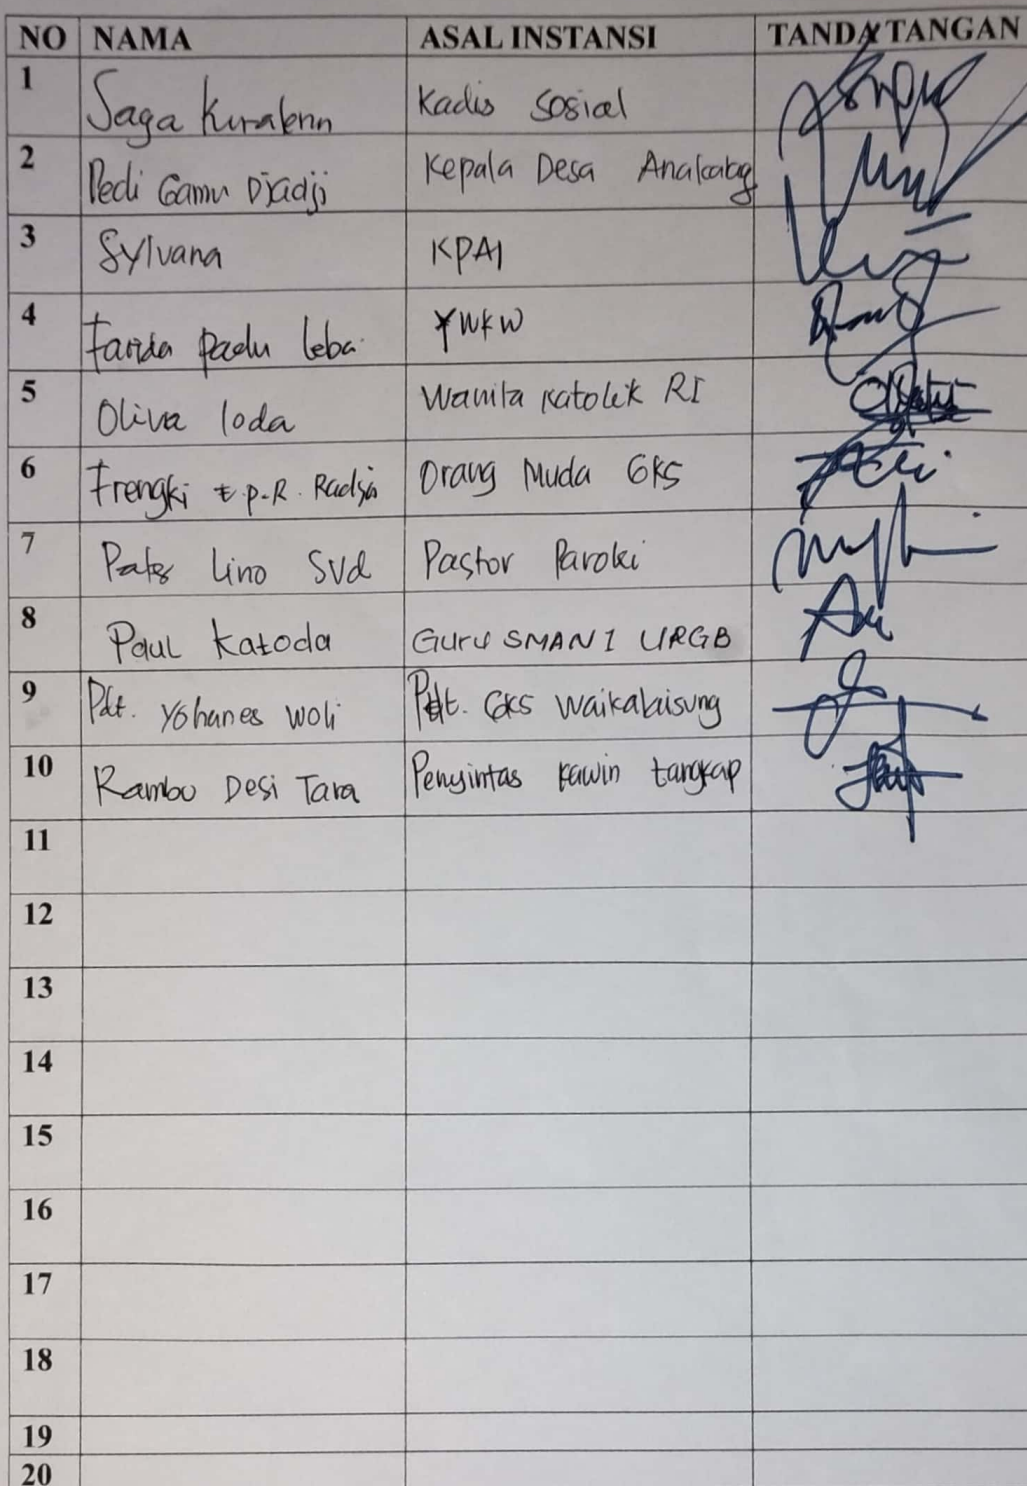 NO NAMA ASAL INSTANSI TANDA TANGAN
1 Saga Kuralenn Kadis Sosial
2 Pedi Gamu Djadji Kepala Desa Analcabag
3 Sylvana KPAI
4 Farida Padu Leba YWKW
5 Oliva loda Wanita Katolik RI
6 Frengki t.p.R. Radja Orang Muda GKS
7 Pater Lino SVd Pastor Paroki
8 Paul Katoda Guru SMAN 1 URGB
9 Pdt. Yohanes Woli Pdt. GKS Waikalaisung
10 Rambu Desi Tara Penyintas kawin tangkap
11
12
13
14
15
16
17
18
19
20